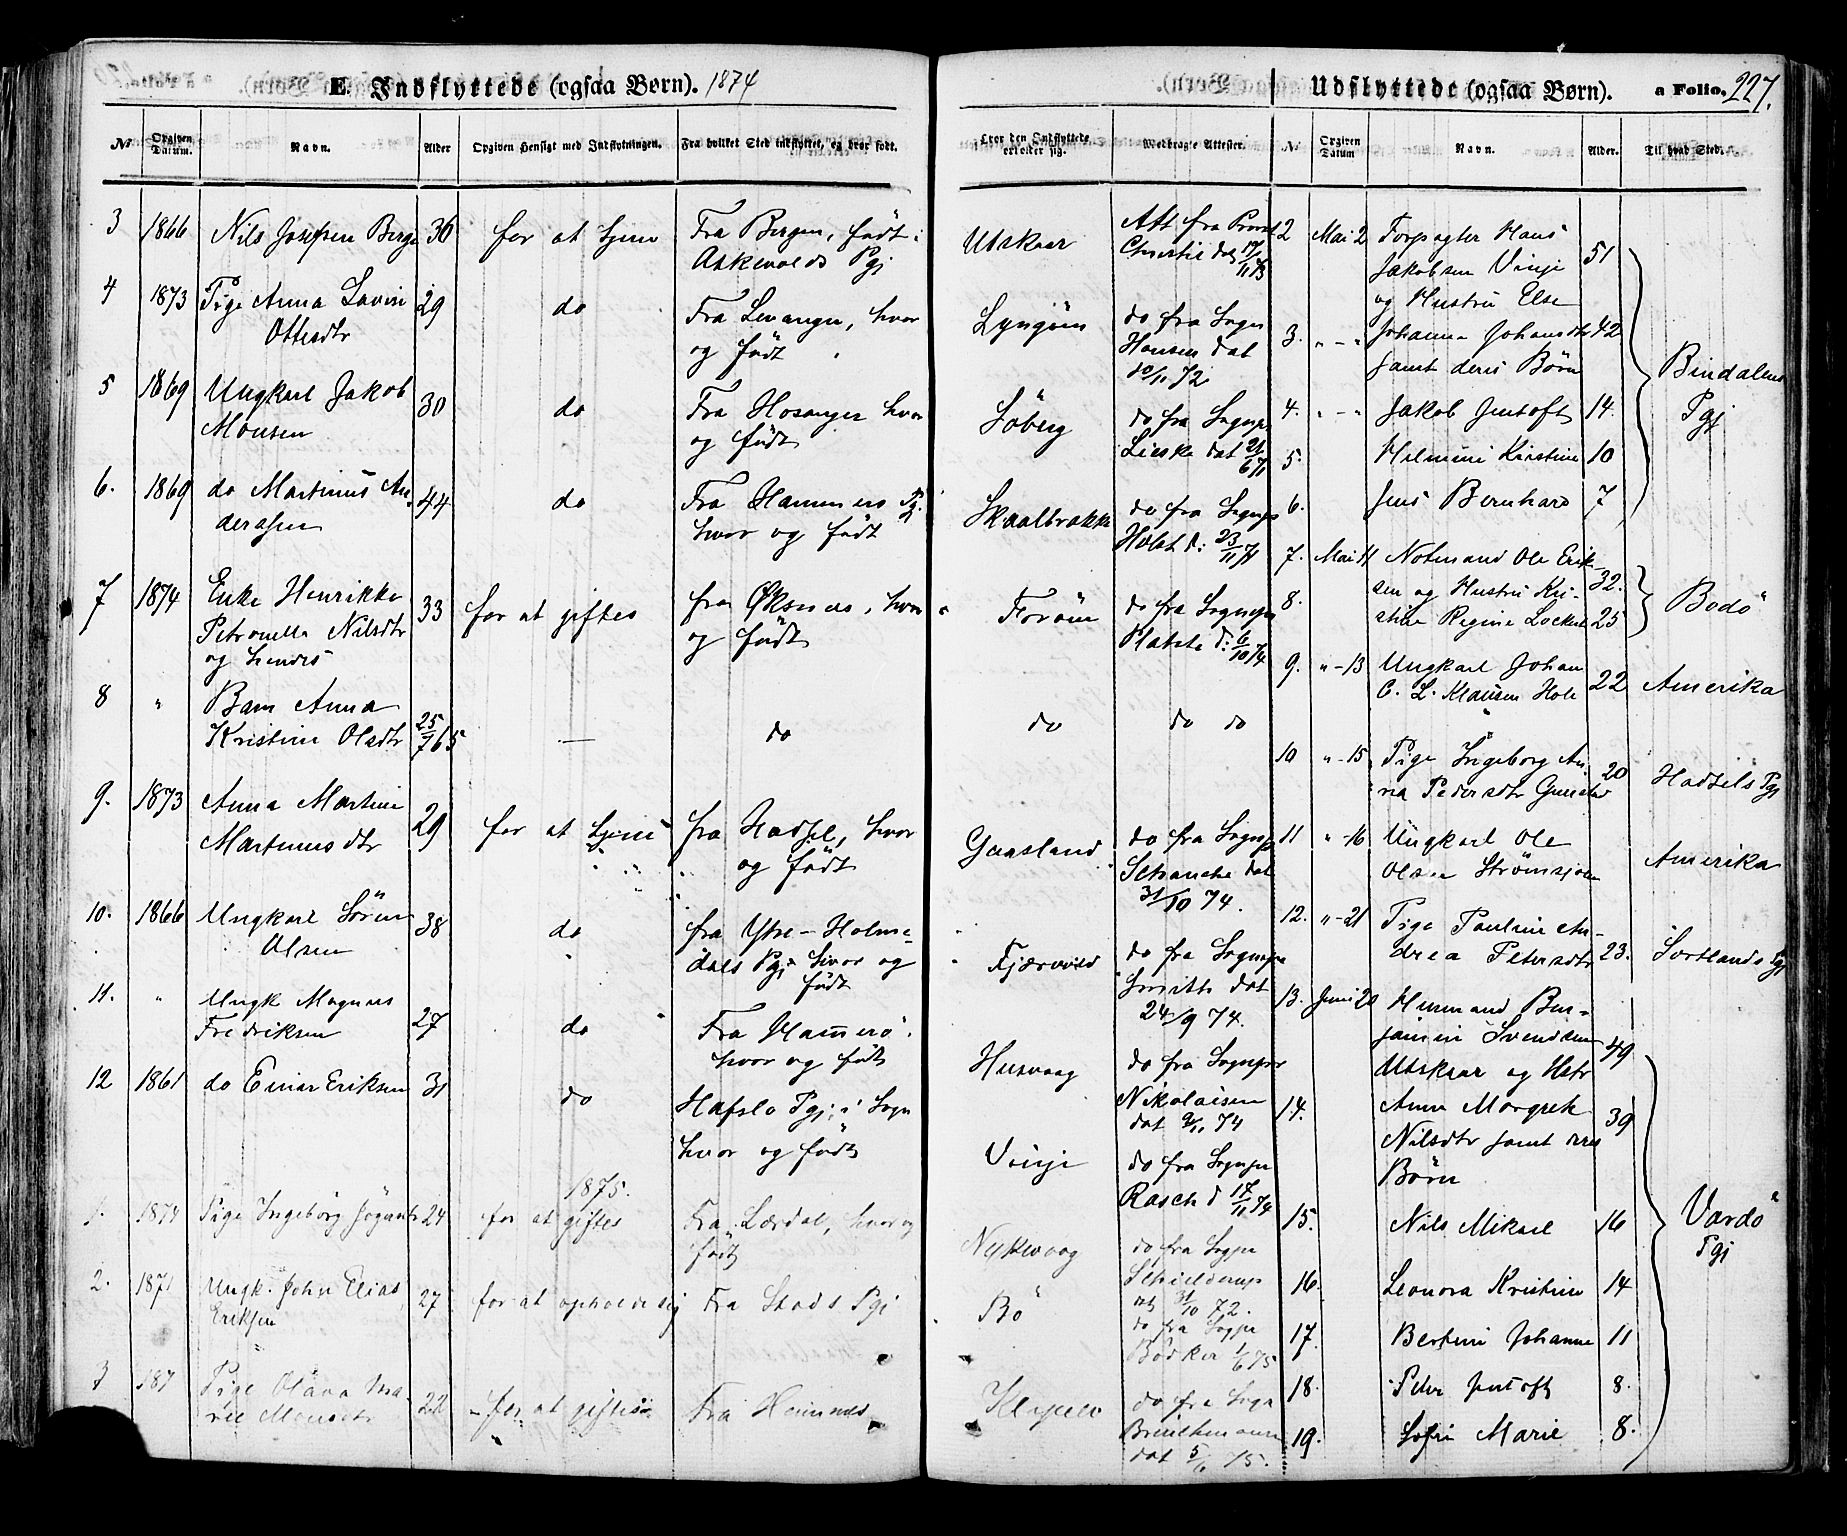 E. Indflyttede (ogsaa Børn). 1874
№ Opgiven Datum. Navn. Alder Opgiven Hensigt med Indflytningen. Fra hvilket Sted indflyttet, og hvor født.
3 1866 Nils Josefsen Berge 36 for at tjene Fra Bergen, født i
Askevolds Pgj
4 1873 Pige Anna Lovise 29 do Fra Levanger, hvor
Ottesdtr og født
5 1869 Ungkarl Jakob 30 do Fra Hosanger hvor
Monsen og født
6. 1869 do Martinus An- 44 do Fra Hammers Pgj.
derssen hvor og født
7 1874 Enke Henrikke 33 for at giftes fra Øksnes, hvor
Petronella Nilsdtr og født
og hendes
8 " Barn Anna
Kristine Olsdtr 25/7 65 — do
9. 1873 Anna Martine 29 for at tjene fra Hadsel, hvor
Martinusdtr og født
10. 1866 Ungkarl Sören 38 do fra Ytre-Holme-
Olsen dals Pgj. hvor og
født
11. " Ungk Magnus 27 do Fra Hammerö
Fredriksen hvor og født
12 1861 do Einar Eriksen 31 do Hafslo Pgj. i Sogn
hvor og født
1875.
1. 1874 Pige Ingeborg 24 for at giftes Fra Lærdal, hvor og
født
2. 1871 Ungk. John Elias 27 for at opholde sig Fra Stods Pgj
Eriksen
3 187 Pige Olava Ma- 22 for at giftes Fra Hemnes
rie Monsdtr
Hvor den Indflyttede erholder sig. Medbragte Attester.
Utskaar Att fra Provst
Christie dat 17/11 73
Lyngöen do fra Sogn
Hansen dat
10/11 72
Söberg do fra Sognpr
Lieske dat 21/6 71
Skaalbrække do fra Sognpr
Holst d: 23/11 71
Foröen do fra Sognpr
d: 6/10 74
do do do
Gaasland do fra Sognpr
Schanche dat
31/10 74.
Fjærvold do fra Sognpr
Smitth dat
24/9 74.
Husvaag do fra Sognpr
Nikolaisen
dat 9/11 74
Vinje do fra Sognpr
Rasch d 17/11 74
Nykvaag do fra Sogpr
Schielderup
dat 31/10 72.
Bö do fra Sogpr
Bödker 1/6 75
do fra Sogn
dat 5/ 75.
Udflyttede (ogsaa Børn). a Folio. 227.
№ Opgiven Datum Navn. Alder. Til hvad Sted.
2 Mai 2 Forpagter Hans
Jakobsen Vinje 51
og Hustru Else
3. " - " Johanna Johansdtr 42
samt deres Børn
4. " - " Jakob Jentoft 14.
5. Helmine Kirstine 10
6. Jens Bernhard 7
Bindalens
Pgj
7. Mai 11 Notmand Ole Erik-
sen og Hustru Kri- 32.
8. stine Regine Lockert 25
Bodö
9. " - 13 Ungkarl Johan
C. L. Klausen Hole 22 Amerika
10 " - 15 Pige Ingeborg An-
na Pedersdtr 20 Hadsels Pgj
11 " - 16 Ungkarl Ole
Olsen Strømsjöen Amerika
12. " - 21 Pige Pauline An-
drea Petersdtr 23. Sortlands Pgj
13. Juni 20 Husmand Ben-
jamin Svendsen 49
Utskaar og Hstr
14. Anne Margrete 39
Nilsdtr samt deres
Børn
15. Nils Mikael 16
16. Leonora Kristine 14
17. Berthine Johanne 11
18. Peter Jentoft 8.
19. Sofie Marie 8.
Vardö
Pgj